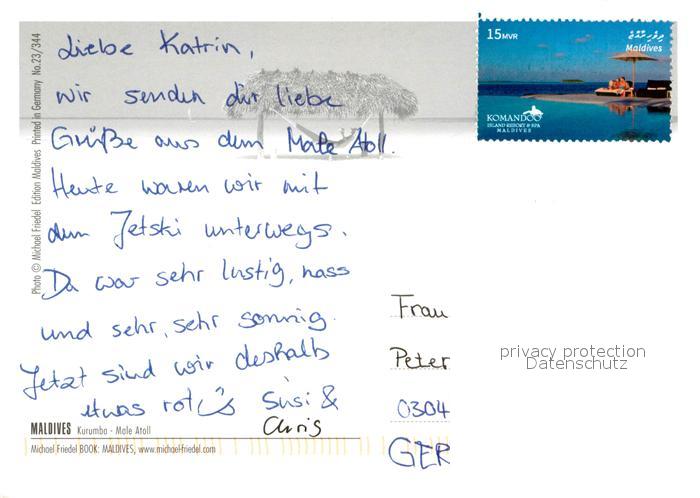 Liebe Katrin,
wir senden dir liebe
Grüße aus dem Male Atoll.
Heute waren wir mit
dem Jetski unterwegs.
Da war sehr lustig, nass
und sehr, sehr sonnig.
Jetzt sind wir deshalb
etwas rot
Susi &
Chris
MALDIVES Kurumba - Male Atoll
Michael Friedel BOOK: MALDIVES, www.michael-friedel.com
Photo © Michael Friedel Edition Maldives Printed in Germany No.23/344
15 MVR
ދިވެހިރާއްޖެ
Maldives
KOMANDOO
ISLAND RESORT & SPA
MALDIVES
Frau
Peter
0304
GER
privacy protection
Datenschutz